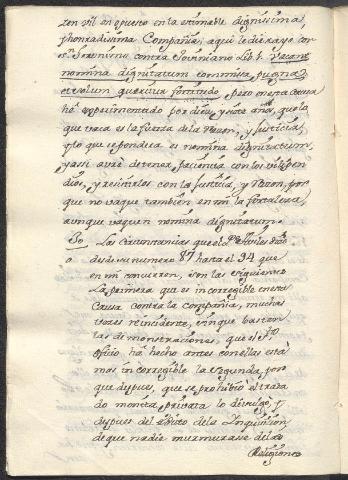 zon vil an opuesto en la estimable dignissima,
y honradissima Compañia, aqui le diera yo con
Sn. Geronimo contra Joviniano Lib. 1. Vacant
nomina dignitatum commissa pugna,
et solum quæritur fortitudo, pero en esta causa
hè experimentado por diez, y siete años, que lo
que vaca es la fuerza de la Razon, y Justicia,
y lo que se pondera es nomina dignitatum,
y assi avrè de tener paciencia con los vilipen
dios, y resistirlos con la Justicia, y Razon, por
que no vaque tambien en mi la fortaleza,
aunque vaquen nomina dignitatum.
30. Las circunstancias que el Pe. Aviles dixo
desde su numero 87 hasta el 94 que
en mi concurren, son las siguientes
La primera que es incorregible en esta
Causa contra la Compañia, muchas
vezes reincidente, sin que bastén
las demonstraciones, que el Sto.
Oficio hà hecho antes con ellas està
mas incorregible la Segunda, por
que despues, que se prohibiò el trata
do moneta privata lo divulgò, y
despues del Edicto de la Inquisicion,
de que nadie murmurasse de las
Religiones